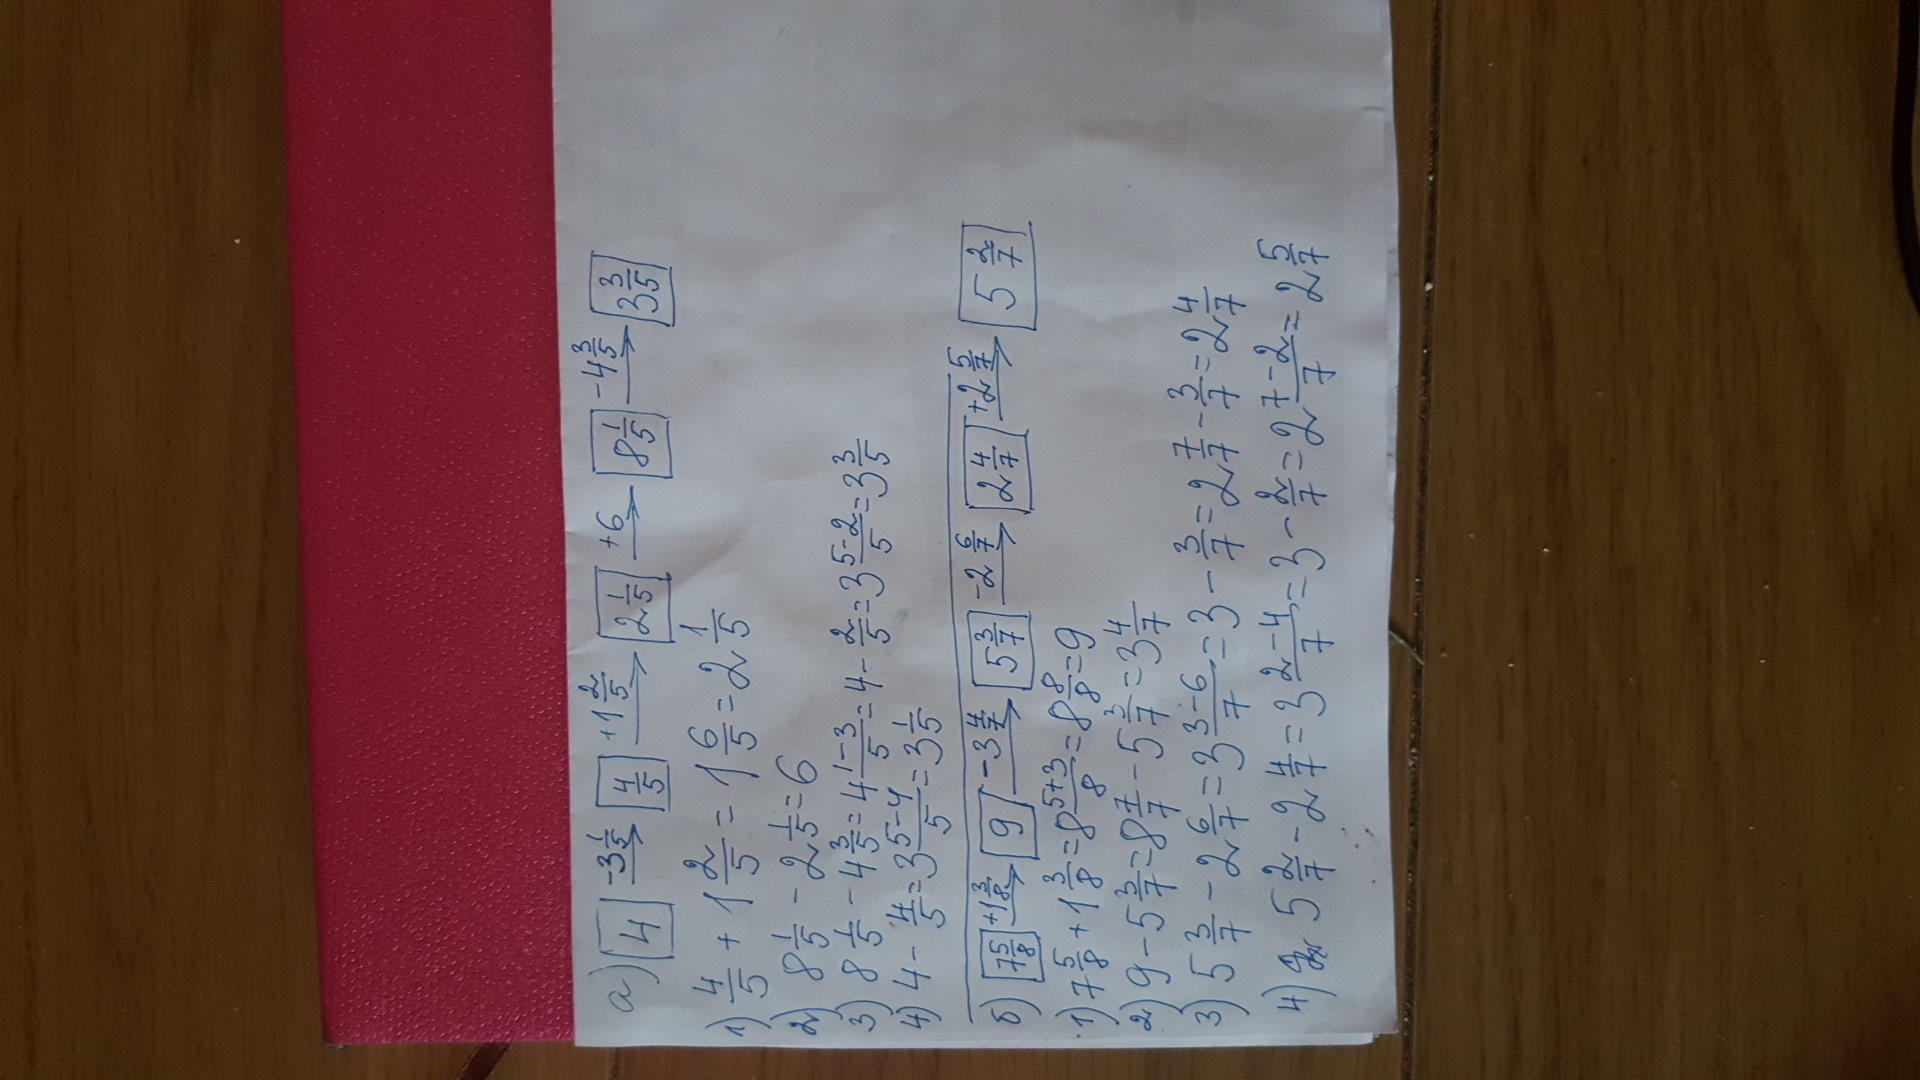 а) 4 -3 1/5 → 4/5 +1 2/5 → 2 1/5 +6 → 8 1/5 -4 3/5 → 3 3/5
1) 4/5 + 1 2/5 = 1 6/5 = 2 1/5
2) 8 1/5 - 2 1/5 = 6
3) 8 1/5 - 4 3/5 = 4 1-3/5 = 4 - 2/5 = 3 5-2/5 = 3 3/5
4) 4 - 4/5 = 3 5-4/5 = 3 1/5
б) 7 5/8 +1 3/8 → 9 -3 4/7 → 5 3/7 -2 6/7 → 2 4/7 +2 5/7 → 5 2/7
1) 7 5/8 + 1 3/8 = 8 5+3/8 = 8 8/8 = 9
2) 9 - 5 3/7 = 8 7/7 - 5 3/7 = 3 4/7
3) 5 3/7 - 2 6/7 = 3 3-6/7 = 3 - 3/7 = 2 7/7 - 3/7 = 2 4/7
4) 5 2/7 - 2 4/7 = 3 2-4/7 = 3 - 2/7 = 2 7-2/7 = 2 5/7